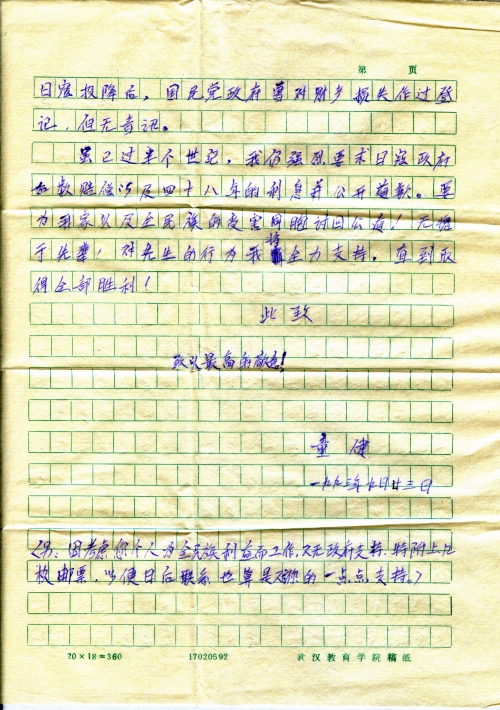 第 页
日寇投降后，国民党政府曾对附乡损失作过登
记，但无音讯。
虽已过半个世纪，我仍强烈要求日寇政府
如数赔偿以及四十八年的利息并公开道歉。要
为我家以及全民族的受害同胞讨回公道！无愧
于先辈！对先生的行为我将全力支持，直到取
得全部胜利！
此致
致以最高的敬意！
童健
一九九三年九月廿三日
（另：因考虑您个人为全民族利益而工作，又无政府支持，特附上几
枚邮票，以便日后联系也算是对你的一点点支持。）
20×18=360 17020592 武汉教育学院稿纸